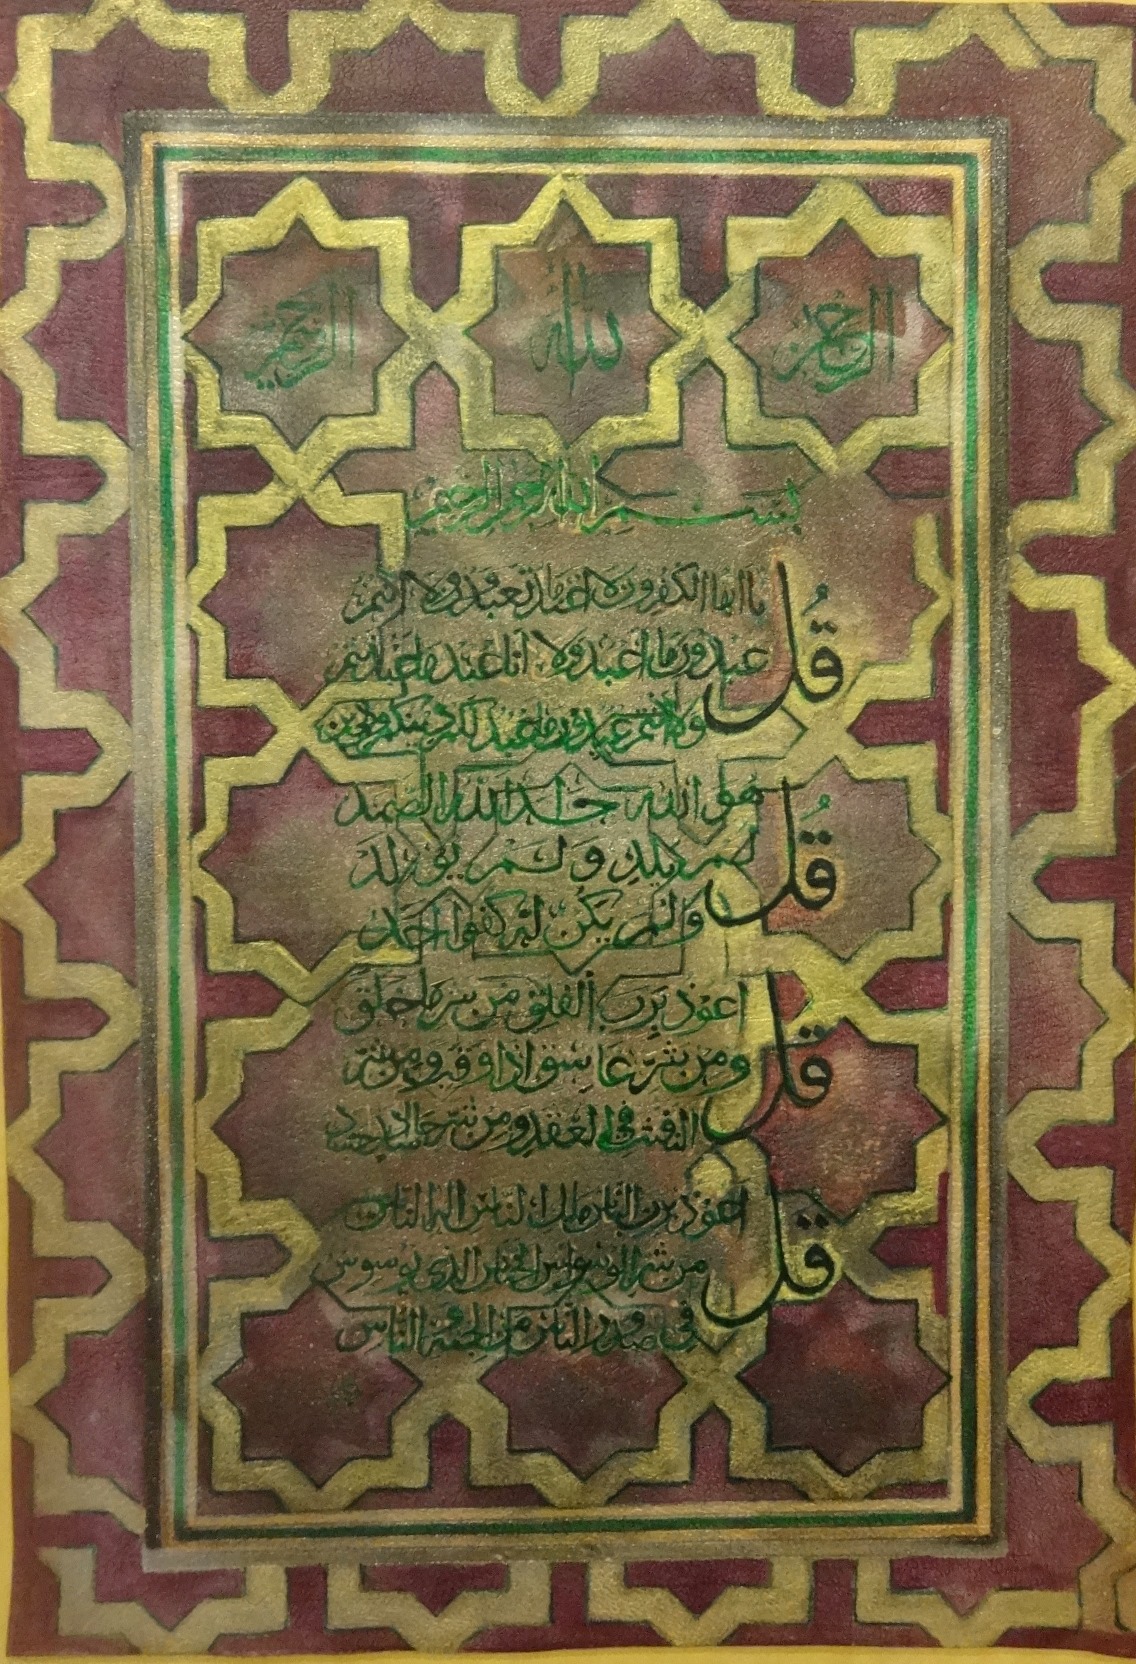 الرحمن
الله
الرحيم
بسم الله الرحمن الرحيم
قل يا ايها الكفرون لا اعبد ما تعبدون ولا انتم
عبدون ما اعبد ولا انا عبد ما عبدتم
ولا انتم عبدون ما اعبد لكم دينكم ولي دين
قل هو الله احد الله الصمد
لم يلد ولم يولد
ولم يكن له كفوا احد
قل اعوذ برب الفلق من شر ما خلق
ومن شر غاسق اذا وقب ومن شر
النفثت في العقد ومن شر حاسد اذا حسد
قل اعوذ برب الناس ملك الناس اله الناس
من شر الوسواس الخناس الذي يوسوس
في صدور الناس من الجنة و الناس